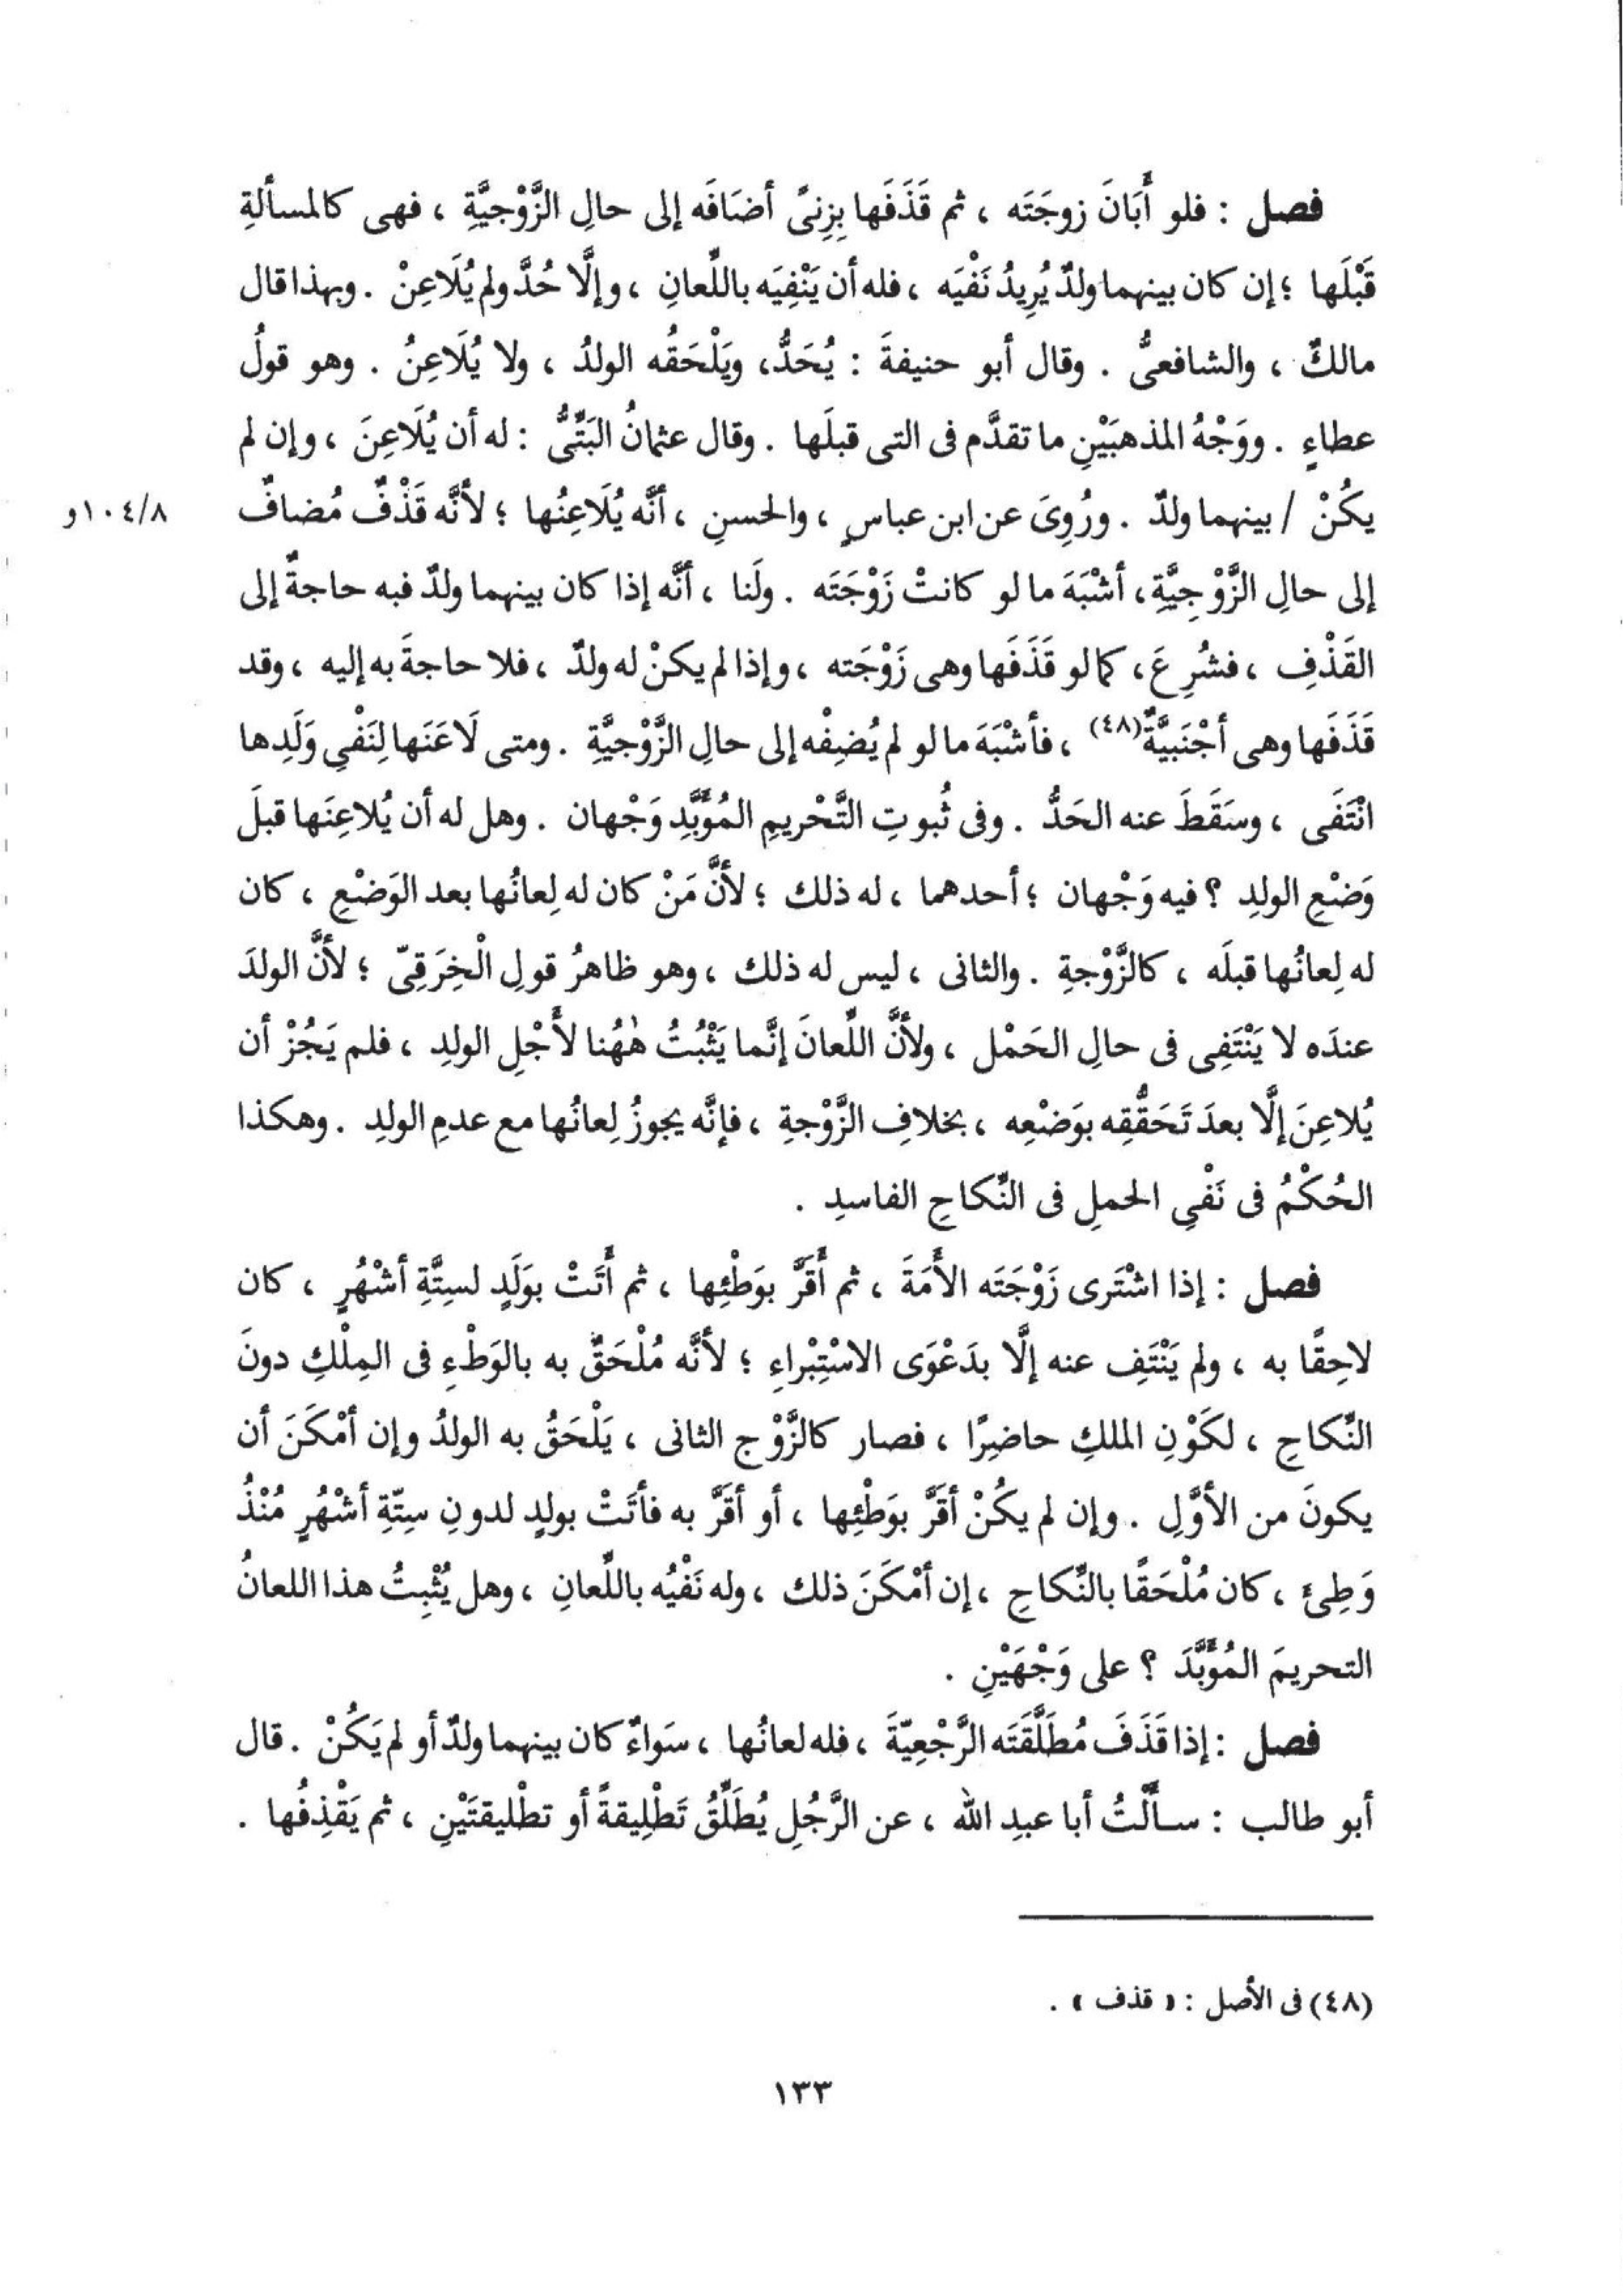 فصل : فلو أَبَانَ زوجَتَه ، ثم قَذَفَها بِزِنىً أضَافَه إلى حالِ الزَّوْجيَّةِ ، فهى كالمسألةِ
قَبْلَها ؛ إن كان بينهما ولدٌ يُرِيدُ نَفْيَه ، فله أن يَنْفِيَه باللِّعانِ ، وإلَّا حُدَّ ولم يُلَاعِنْ . وبهذا قال
مالكٌ ، والشافعىُّ . وقال أبو حنيفةَ : يُحَدُّ، ويَلْحَقُه الولدُ ، ولا يُلَاعِنُ . وهو قولُ
عطاءٍ . ووَجْهُ المذهبَيْنِ ما تقدَّم فى التى قبلَها . وقال عثمانُ البَتِّىُّ : له أن يُلَاعِنَ ، وإن لم
يكُنْ / بينهما ولدٌ . ورُوِىَ عن ابن عباسٍ ، والحسنِ ، أنَّه يُلَاعِنُها ؛ لأنَّه قَذْفٌ مُضافٌ
٨/١٠٤و
إلى حالِ الزَّوْجِيَّةِ، أشْبَهَ ما لو كانتْ زَوْجَتَه . ولَنا ، أنَّه إذا كان بينهما ولدٌ فبه حاجةٌ إلى
القَذْفِ ، فشُرِعَ، كما لو قَذَفَها وهى زَوْجَته ، وإذا لم يكنْ له ولدٌ ، فلا حاجةَ به إليه ، وقد
قَذَفَها وهى أجْنَبيَّةٌ(٤٨) ، فأشْبَهَ ما لو لم يُضِفْه إلى حالِ الزَّوْجيَّةِ . ومتى لَاعَنَها لِنَفْىِ وَلَدِها
انْتَفَى ، وسَقَطَ عنه الحَدُّ . وفى ثُبوتِ التَّحْريمِ المُؤَبَّدِ وَجْهان . وهل له أن يُلاعِنَها قبلَ
وَضْعِ الولدِ ؟ فيه وَجْهان ؛ أحدهما ، له ذلك ؛ لأنَّ مَنْ كان له لِعانُها بعد الوَضْعِ ، كان
له لِعانُها قبلَه ، كالزَّوْجةِ . والثانى ، ليس له ذلك ، وهو ظاهرُ قولِ الْخِرَقِىّ ؛ لأنَّ الولدَ
عندَه لا يَنْتَفِى فى حالِ الحَمْل ، ولأنَّ اللِّعانَ إنَّما يَثْبُتُ هٰهُنا لأَجْلِ الولدِ ، فلم يَجُزْ أن
يُلاعِنَ إلَّا بعدَ تَحَقُّقِه بوَضْعِه ، بخلافِ الزَّوْجةِ ، فإنَّه يجوزُ لِعانُها مع عدمِ الولدِ . وهكذا
الحُكْمُ فى نَفْىِ الحملِ فى النِّكاحِ الفاسدِ .
فصل : إذا اشْتَرى زَوْجَتَه الأَمَةَ ، ثم أَقَرَّ بوَطْئِها ، ثم أَتَتْ بوَلَدٍ لسِتَّةِ أشْهُرٍ ، كان
لاحِقًا به ، ولم يَنْتَفِ عنه إلَّا بدَعْوَى الاسْتِبْراءِ ؛ لأنَّه مُلْحَقٌ به بالوَطْءِ فى المِلْكِ دونَ
النِّكاحِ ، لكَوْنِ الملكِ حاضِرًا ، فصار كالزَّوْج الثانى ، يَلْحَقُ به الولدُ وإن أمْكَنَ أن
يكونَ من الأوَّلِ . وإن لم يكُنْ أقَرَّ بوَطْئِها ، أو أقَرَّ به فأتَتْ بولدٍ لدونِ سِتّةِ أشْهُرٍ مُنْذُ
وَطِئَ ، كان مُلْحَقًا بالنِّكاحِ ، إن أمْكَنَ ذلك ، وله نَفْيُه باللِّعانِ ، وهل يُثْبِتُ هذا اللعانُ
التحريمَ المُؤَبَّدَ ؟ على وَجْهَيْنِ .
فصل : إذا قَذَفَ مُطَلَّقَتَه الرَّجْعِيّةَ ، فله لعانُها ، سَواءٌ كان بينهما ولدٌ أو لم يَكُنْ . قال
أبو طالب : سألْتُ أبا عبدِ الله ، عن الرَّجُلِ يُطَلِّقُ تَطْلِيقةً أو تطْليقتَيْنِ ، ثم يَقْذِفُها .
(٤٨) فى الأصل : « قذف » .
١٣٣